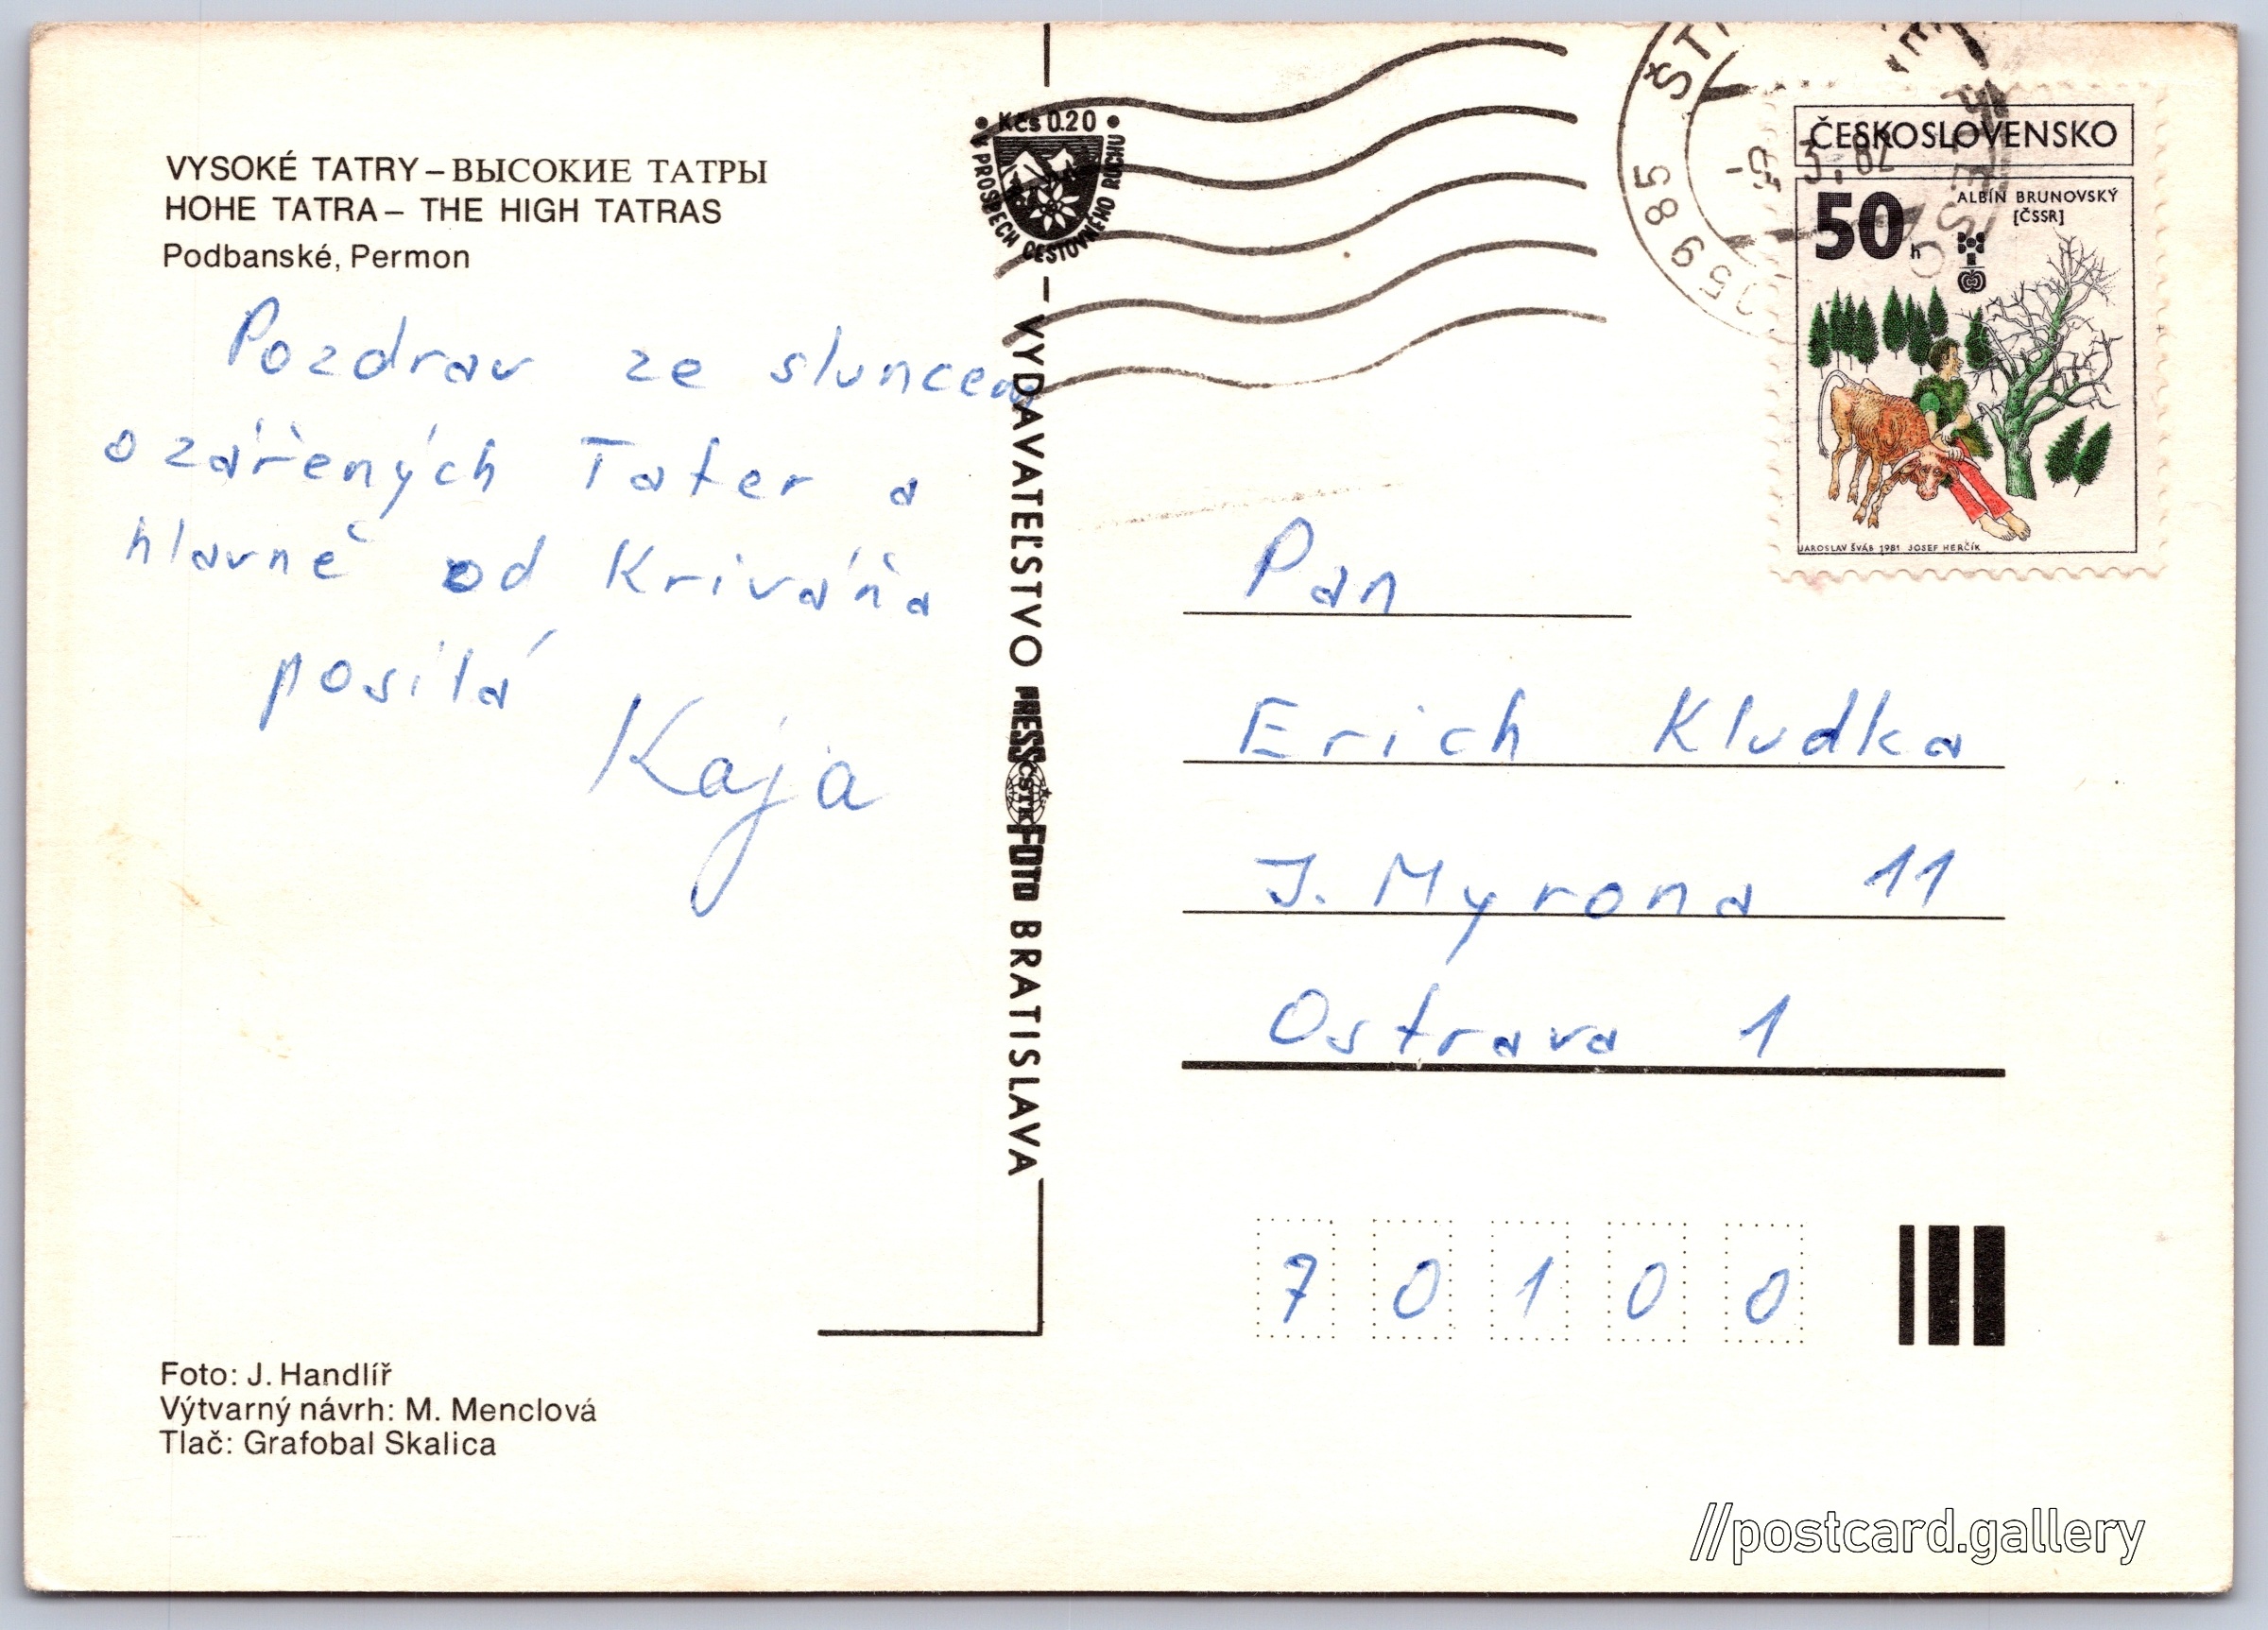 VYSOKÉ TATRY – ВЫСОКИЕ ТАТРЫ
HOHE TATRA – THE HIGH TATRAS
Podbanské, Permon
Pozdrav ze sluncem
ozářených Tater a
hlavně od Kriváňa
posílá
Kaja
Foto: J. Handlíř
Výtvarný návrh: M. Menclová
Tlač: Grafobal Skalica
Kčs 0.20
V PROSPECH CESTOVNÉHO RUCHU
VYDAVATEĽSTVO PRESSFOTO BRATISLAVA
ČSTK
059 85 ŠT
ČESKOSLOVENSKO
50 h
ALBÍN BRUNOVSKÝ
[ČSSR]
JAROSLAV ŠVÁB 1981 JOSEF HERČÍK
Pan
Erich Kludka
J. Myrona 11
Ostrava 1
7 0 1 0 0
//postcard.gallery